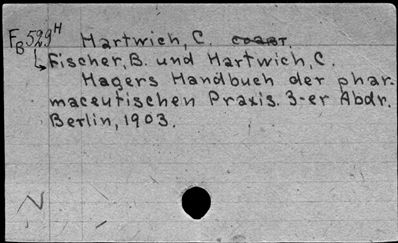 F_B 529^H Hartwich, C. соавт.
Fischer, B. und Hartwich, C.
Hagers Handbuch der phar-
maceutischen Praxis. 3-er Abdr.
Berlin, 1903.